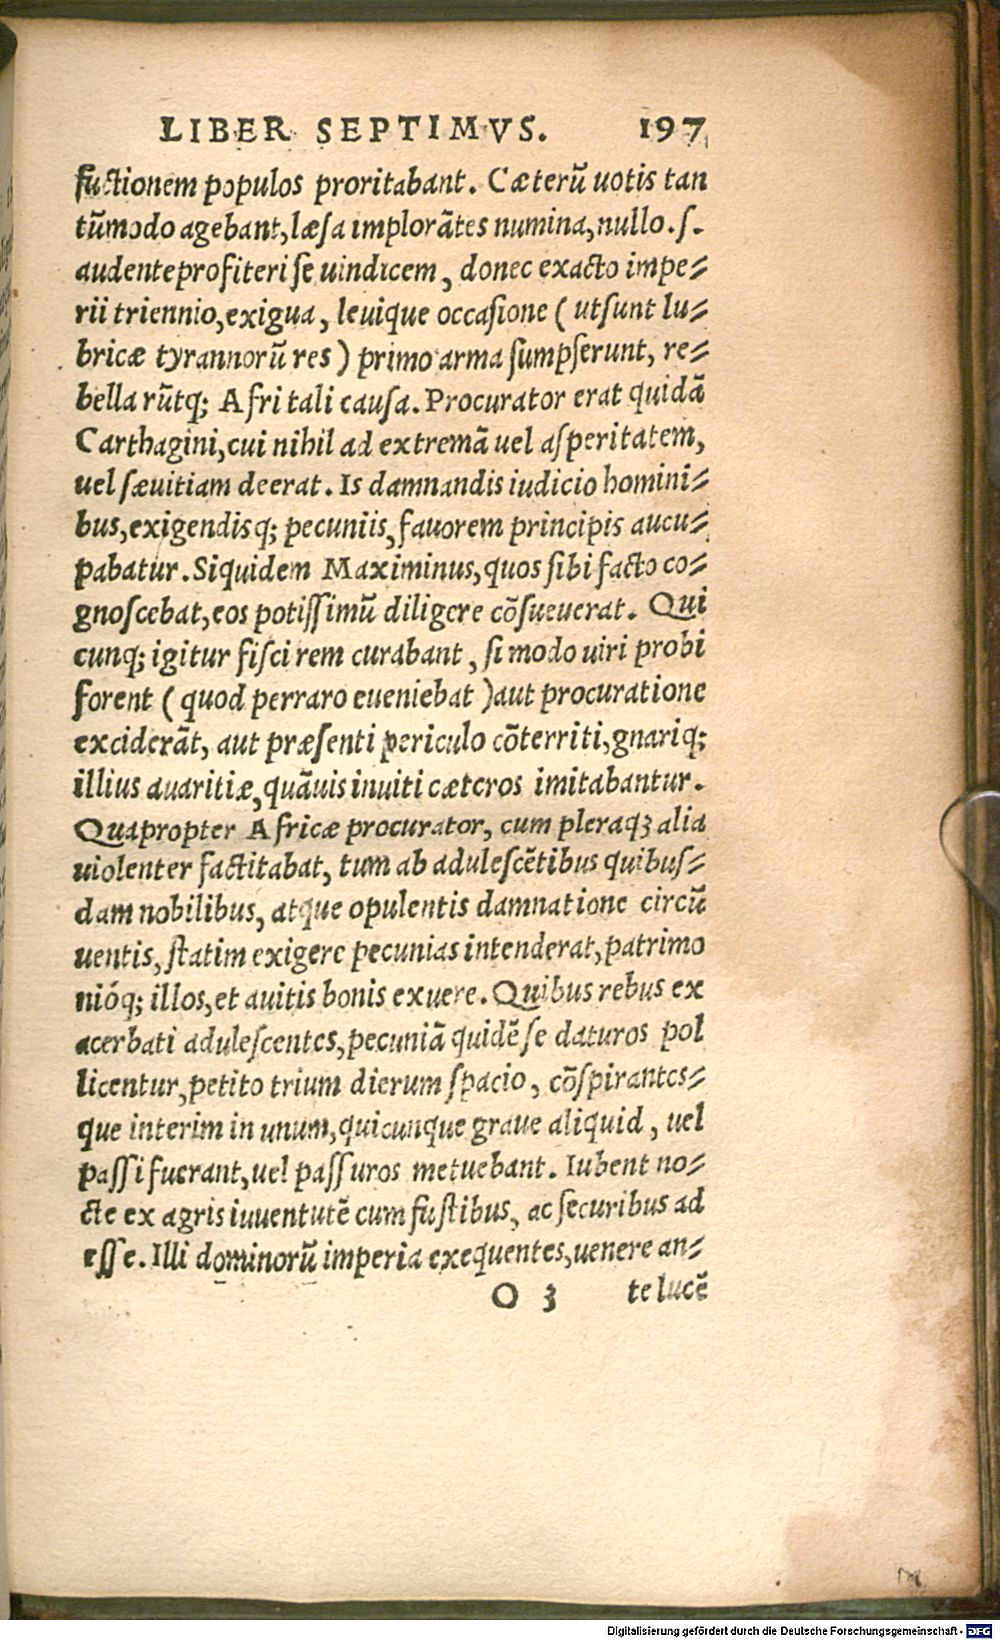 LIBER SEPTIMVS. 197
fuctionem populos proritabant. Cæterũ uotis tan
tũmodo agebant, læsa implorãtes numina, nullo.s.
audente profiteri se uindicem, donec exacto impe⸗
rii triennio, exigua, leuique occasione (ut sunt lu⸗
bricæ tyrannorũ res) primo arma sumpserunt, re⸗
bellarũtq; Afri tali causa. Procurator erat quidã
Carthagini, cui nihil ad extremã uel asperitatem,
uel sæuitiam deerat. Is damnandis iudicio homini⸗
bus, exigendisq; pecuniis, fauorem principis aucu⸗
pabatur. Siquidem Maximinus, quos sibi facto co⸗
gnoscebat, eos potissimũ diligere cõsueuerat. Qui
cunq; igitur fisci rem curabant, si modo uiri probi
forent (quod perraro eueniebat) aut procuratione
exciderãt, aut præsenti periculo cõterriti, gnariq;
illius auaritiæ, quãuis inuiti cæteros imitabantur.
Quapropter Africæ procurator, cum pleraqꝫ alia
uiolenter factitabat, tum ab adulescẽtibus quibus⸗
dam nobilibus, atque opulentis damnatione circũ
uentis, statim exigere pecunias intenderat, patrimo
nióq; illos, et auitis bonis exuere. Quibus rebus ex
acerbati adulescentes, pecuniã quidẽ se daturos pol
licentur, petito trium dierum spacio, cõspirantes⸗
que interim in unum, quicunque graue aliquid, uel
passi fuerant, uel passuros metuebant. Iubent no⸗
cte ex agris iuuentutẽ cum fustibus, ac securibus ad
esse. Illi dominorũ imperia exequentes, uenere an⸗
O 3 te lucẽ
Digitalisierung gefördert durch die Deutsche Forschungsgemeinschaft - DFG